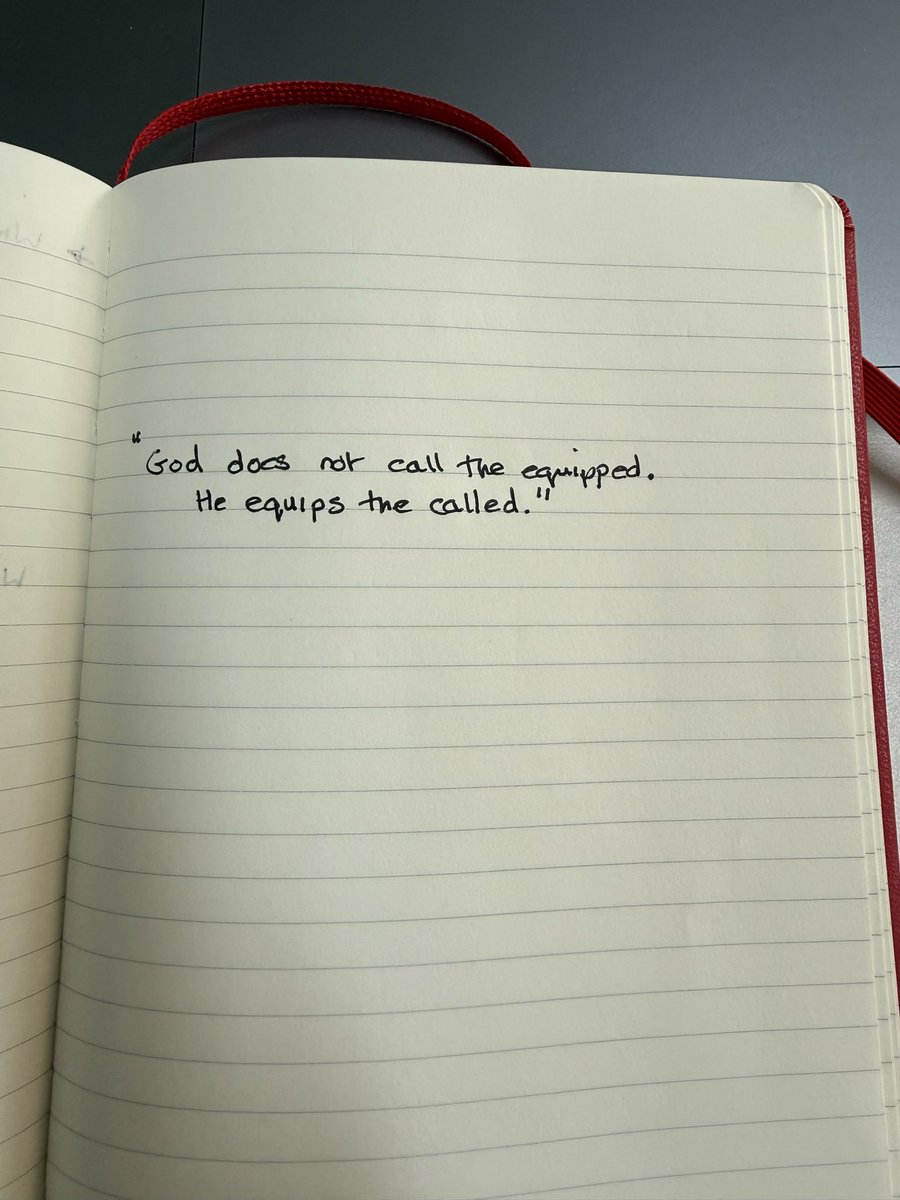 "God does not call the equipped.
He equips the called."